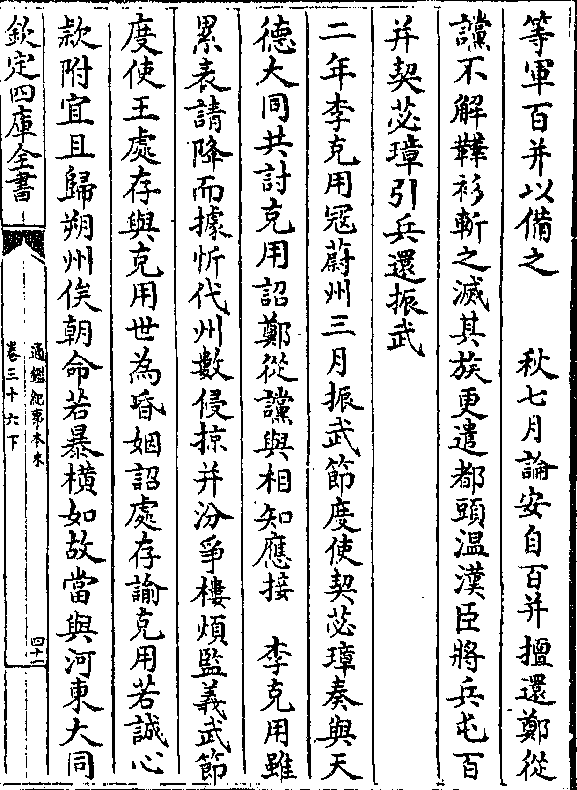 等軍百井以備之　　秋七月論安自百井擅還鄭從
讜不解鞾衫斬之滅其族更遣都頭温漢臣將兵屯百
井契苾璋引兵還振武
二年李克用宼蔚州三月振武節度使契苾璋奏與天
德大同共討克用詔鄭從讜與相知應接　李克用雖
累表請降而據忻代州數侵掠并汾爭樓煩監義武節
度使王處存與克用世為㛰姻詔處存諭克用若誠心
款附宜且歸朔州俟朝命若暴橫如故當與河東大同
欽定四庫全書
通鑑紀事本末
卷三十六下
四十二